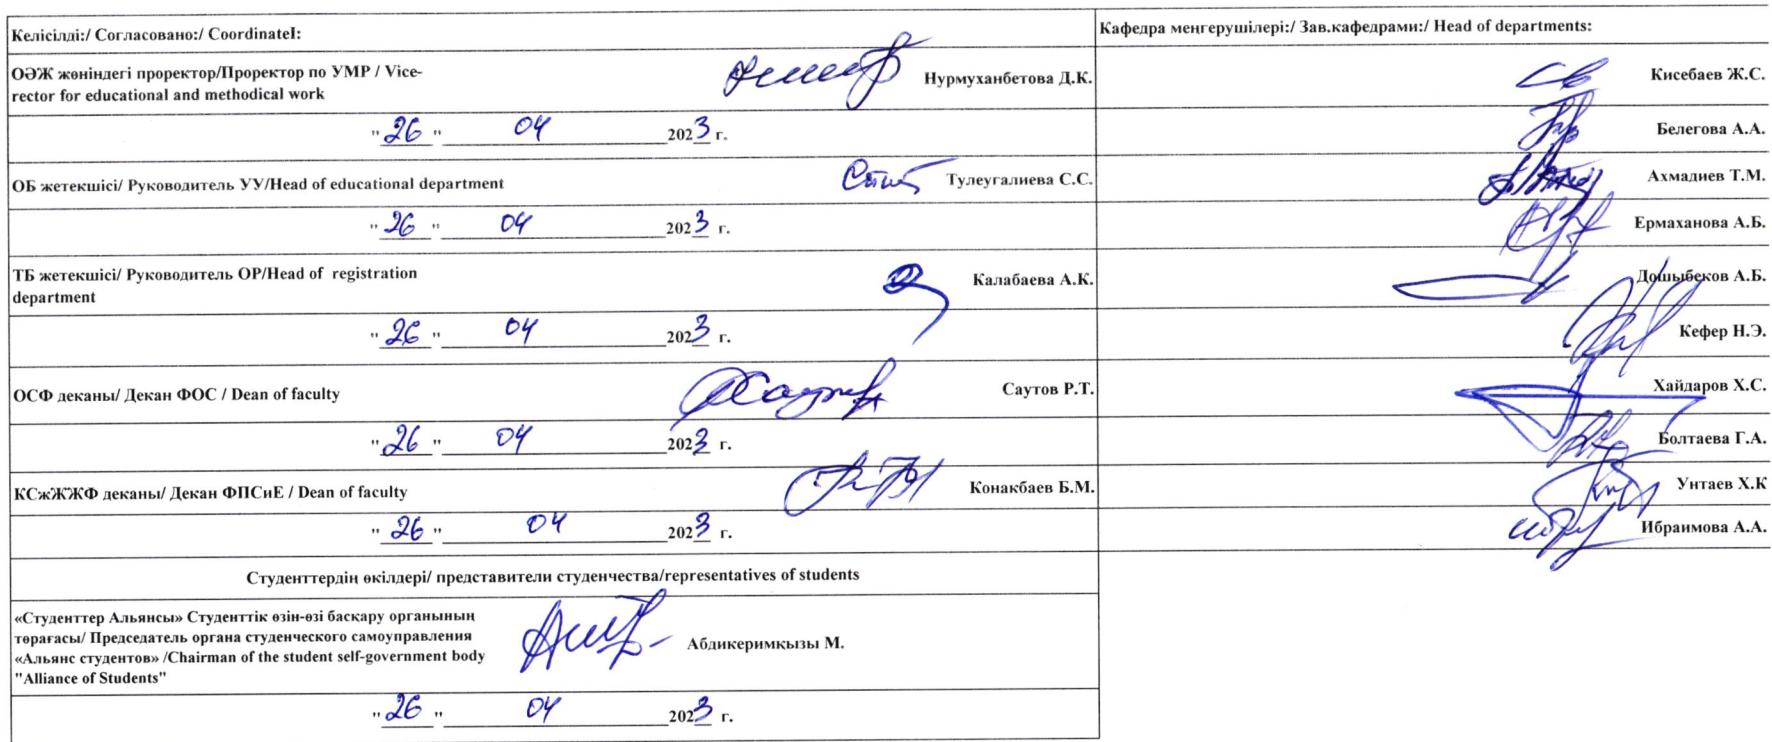 Келісілді:/ Согласовано:/ CoordinateI:
ОӘЖ жөніндегі проректор/Проректор по УМР / Vice-
rector for educational and methodical work
Нурмуханбетова Д.К.
" 26 " 04 2023 г.
ОБ жетекшісі/ Руководитель УУ/Head of educational department
Тулеугалиева С.С.
" 26 " 04 2023 г.
ТБ жетекшісі/ Руководитель ОР/Head of registration
department
Калабаева А.К.
" 26 " 04 2023 г.
ОСФ деканы/ Декан ФОС / Dean of faculty
Саутов Р.Т.
" 26 " 04 2023 г.
КСжЖЖФ деканы/ Декан ФПСиЕ / Dean of faculty
Конакбаев Б.М.
" 26 " 04 2023 г.
Студенттердің өкілдері/ представители студенчества/representatives of students
«Студенттер Альянсы» Студенттік өзін-өзі басқару органының
төрағасы/ Председатель органа студенческого самоуправления
«Альянс студентов» /Chairman of the student self-government body
"Alliance of Students"
Абдикеримқызы М.
" 26 " 04 2023 г.
Кафедра меңгерушілері:/ Зав.кафедрами:/ Head of departments:
Кисебаев Ж.С.
Белегова А.А.
Ахмадиев Т.М.
Ермаханова А.Б.
Дошыбеков А.Б.
Кефер Н.Э.
Хайдаров Х.С.
Болтаева Г.А.
Унтаев Х.К
Ибраимова А.А.